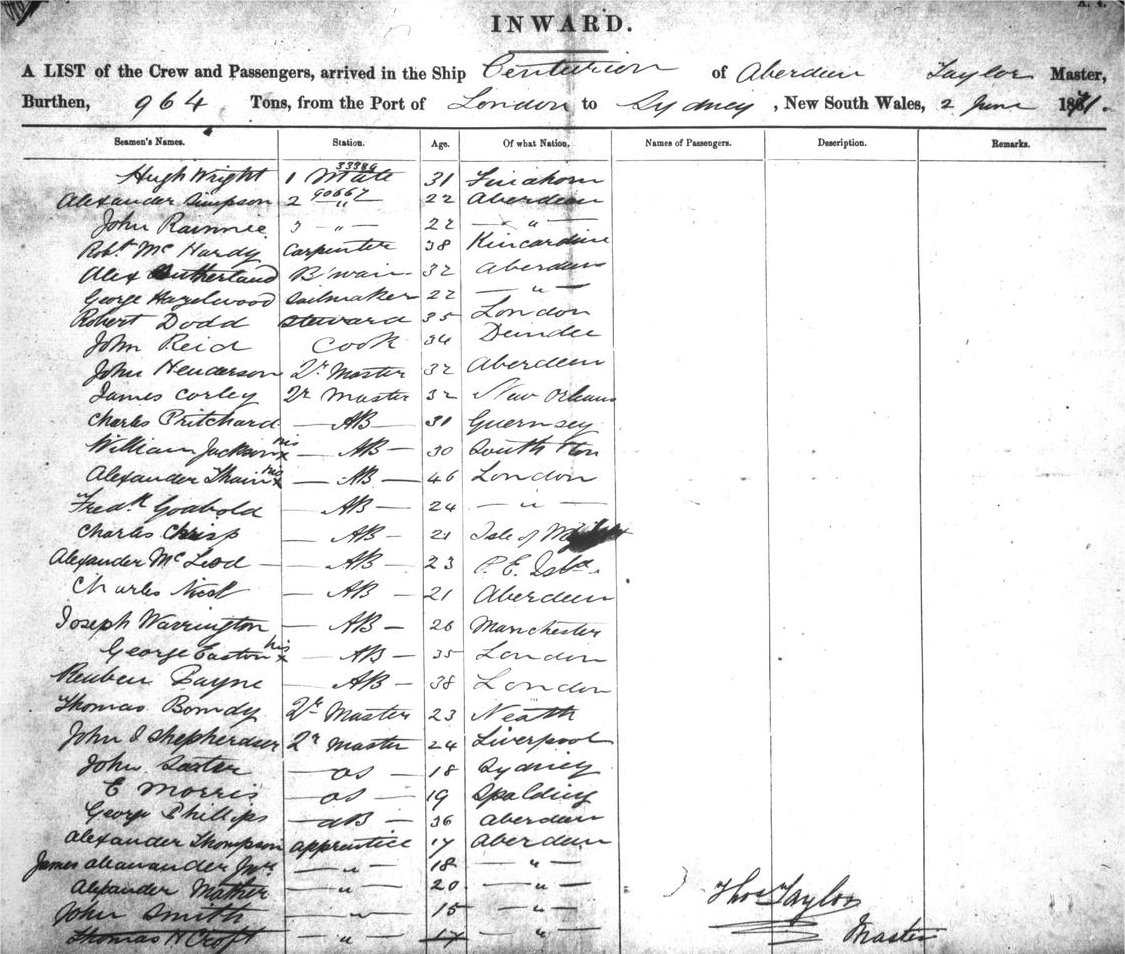 INWARD.
A LIST of the Crew and Passengers, arrived in the Ship Centurion of Aberdeen Taylor Master,
Burthen, 964 Tons, from the Port of London to Sydney, New South Wales, 2 June 1871.
Seamen's Names. Station. Age. Of what Nation. Names of Passengers. Description. Remarks.
Hugh Wright 1 Mate 31
Alexander Simpson 2 90667 " 22 Aberdeen
John Rainnie 3 — " — 22 — " —
Robt. McHardy Carpenter 38 Kincardine
Alex Sutherland B'wain 32 Aberdeen
George Hazelwood Sailmaker 22 — " —
Robert Dodd Steward 35 London
John Reid Cook 34 Dundee
John Henderson Qr Master 32 Aberdeen
James Corley Qr Master 32 New Orleans
Charles Pritchard — AB — 31 Guernsey
William Jackson his x — AB — 30 South'ton
Alexander Thain his x — AB — 46 London
Fredk Goabold — AB — 24 — " —
Charles Crisp — AB — 21 Isle of
Alexander McLeod — AB — 23 P. E. Isld
Charles — AB — 21 Aberdeen
Joseph Warrington — AB — 26 Manchester
George Easton his x — AB — 35 London
Reuben Payne — AB — 38 London
Thomas Qr Master 23 Neath
John Qr Master 24 Liverpool
John — OS — 18 Sydney
E Morris — OS — 19 Spalding
George Phillips — AB — 36 Aberdeen
Alexander Thompson apprentice 17 Aberdeen
James — " — 18 — " —
Alexander Mather — " — 20 — " —
John Smith — " — 15 — " —
Thomas H Croft — " — 17 — " —
Thos Taylor
Master